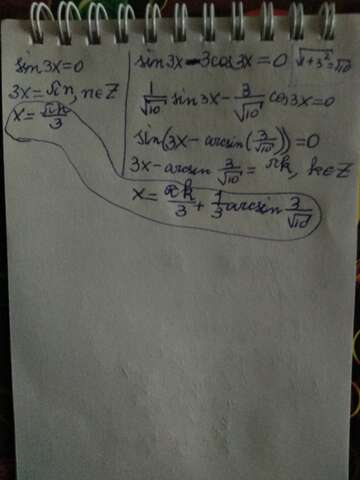 sin3x=0
3x=πn, n∈Z
x=πk/3
sin3x-3cos3x=0 √1+3²=√10
1/√10 sin3x-3/√10 cos3x=0
sin(3x-arcsin(3/√10))=0
3x-arcsin 3/√10=πk, k∈Z
x=πk/3+1/3 arcsin 3/√10